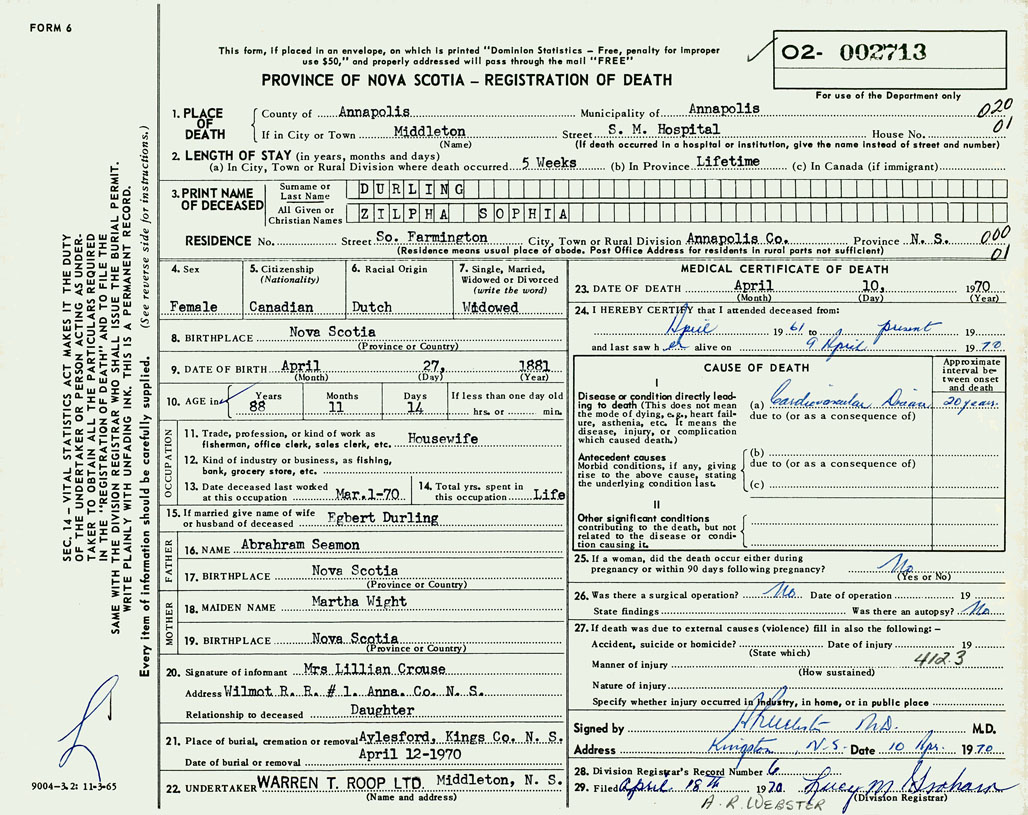 FORM 6
This form, if placed in an envelope, on which is printed "Dominion Statistics – Free, penalty for improper
use $50," and properly addressed will pass through the mail "FREE"
PROVINCE OF NOVA SCOTIA – REGISTRATION OF DEATH
O2- 002713
For use of the Department only
1. PLACE OF DEATH
County of Annapolis Municipality of Annapolis 020
If in City or Town Middleton Street S. M. Hospital House No. 01
(Name) (If death occurred in a hospital or institution, give the name instead of street and number)
2. LENGTH OF STAY (in years, months and days)
(a) In City, Town or Rural Division where death occurred 5 Weeks (b) In Province Lifetime (c) In Canada (if immigrant)
3. PRINT NAME OF DECEASED
Surname or Last Name DURLING
All Given or Christian Names ZILPHA SOPHIA
RESIDENCE No. Street So. Farmington City, Town or Rural Division Annapolis Co. Province N. S. 000
(Residence means usual place of abode. Post Office Address for residents in rural parts not sufficient) 01
SEC. 14 – VITAL STATISTICS ACT MAKES IT THE DUTY
OF THE UNDERTAKER OR PERSON ACTING AS UNDER-
TAKER TO OBTAIN ALL THE PARTICULARS REQUIRED
IN THE "REGISTRATION OF DEATH" AND TO FILE THE
SAME WITH THE DIVISION REGISTRAR WHO SHALL ISSUE THE BURIAL PERMIT.
WRITE PLAINLY WITH UNFADING INK. THIS IS A PERMANENT RECORD.
Every item of information should be carefully supplied. (See reverse side for instructions.)
4. Sex
Female
5. Citizenship
(Nationality)
Canadian
6. Racial Origin
Dutch
7. Single, Married,
Widowed or Divorced
(write the word)
Widowed
8. BIRTHPLACE Nova Scotia
(Province or Country)
9. DATE OF BIRTH April 27, 1881
(Month) (Day) (Year)
10. AGE in Years Months Days If less than one day old
88 11 14 hrs. or min.
OCCUPATION
11. Trade, profession, or kind of work as
fisherman, office clerk, sales clerk, etc. Housewife
12. Kind of industry or business, as fishing,
bank, grocery store, etc.
13. Date deceased last worked
at this occupation Mar.1-70
14. Total yrs. spent in
this occupation Life
15. If married give name of wife
or husband of deceased Egbert Durling
FATHER
16. NAME Abrahram Seamon
17. BIRTHPLACE Nova Scotia
(Province or Country)
MOTHER
18. MAIDEN NAME Martha Wight
19. BIRTHPLACE Nova Scotia
(Province or Country)
20. Signature of informant Mrs Lillian Crouse
Address Wilmot R. R. # 1. Anna. Co. N. S.
Relationship to deceased Daughter
21. Place of burial, cremation or removal Aylesford, Kings Co. N. S.
Date of burial or removal April 12-1970
22. UNDERTAKER WARREN T. ROOP LTD. Middleton, N. S.
(Name and address)
9004–3.2: 11-3-65
MEDICAL CERTIFICATE OF DEATH
23. DATE OF DEATH April 10, 1970
(Month) (Day) (Year)
24. I HEREBY CERTIFY that I attended deceased from:
April 1961 to present 19
and last saw her alive on 9 April 1970
CAUSE OF DEATH
Approximate
interval be-
tween onset
and death
I
Disease or condition directly lead-
ing to death (This does not mean
the mode of dying, e.g., heart fail-
ure, asthenia, etc. It means the
disease, injury, or complication
which caused death.)
(a) Cardiovascular 20 years
due to (or as a consequence of)
Antecedent causes
Morbid conditions, if any, giving
rise to the above cause, stating
the underlying condition last.
(b)
due to (or as a consequence of)
(c)
II
Other significant conditions
contributing to the death, but not
related to the disease or condi-
tion causing it.
25. If a woman, did the death occur either during
pregnancy or within 90 days following pregnancy? No
(Yes or No)
26. Was there a surgical operation? No Date of operation 19
State findings Was there an autopsy? No
27. If death was due to external causes (violence) fill in also the following: –
Accident, suicide or homicide? Date of injury 19
(State which) 412.3
Manner of injury
(How sustained)
Nature of injury
Specify whether injury occurred in industry, in home, or in public place
Signed by M.D. M.D.
Address Kingston, N.S. Date 10 Apr. 1970
28. Division Registrar's Record Number 6
29. Filed April 18th 1970. Lucy M Graham
A. R. WEBSTER (Division Registrar)